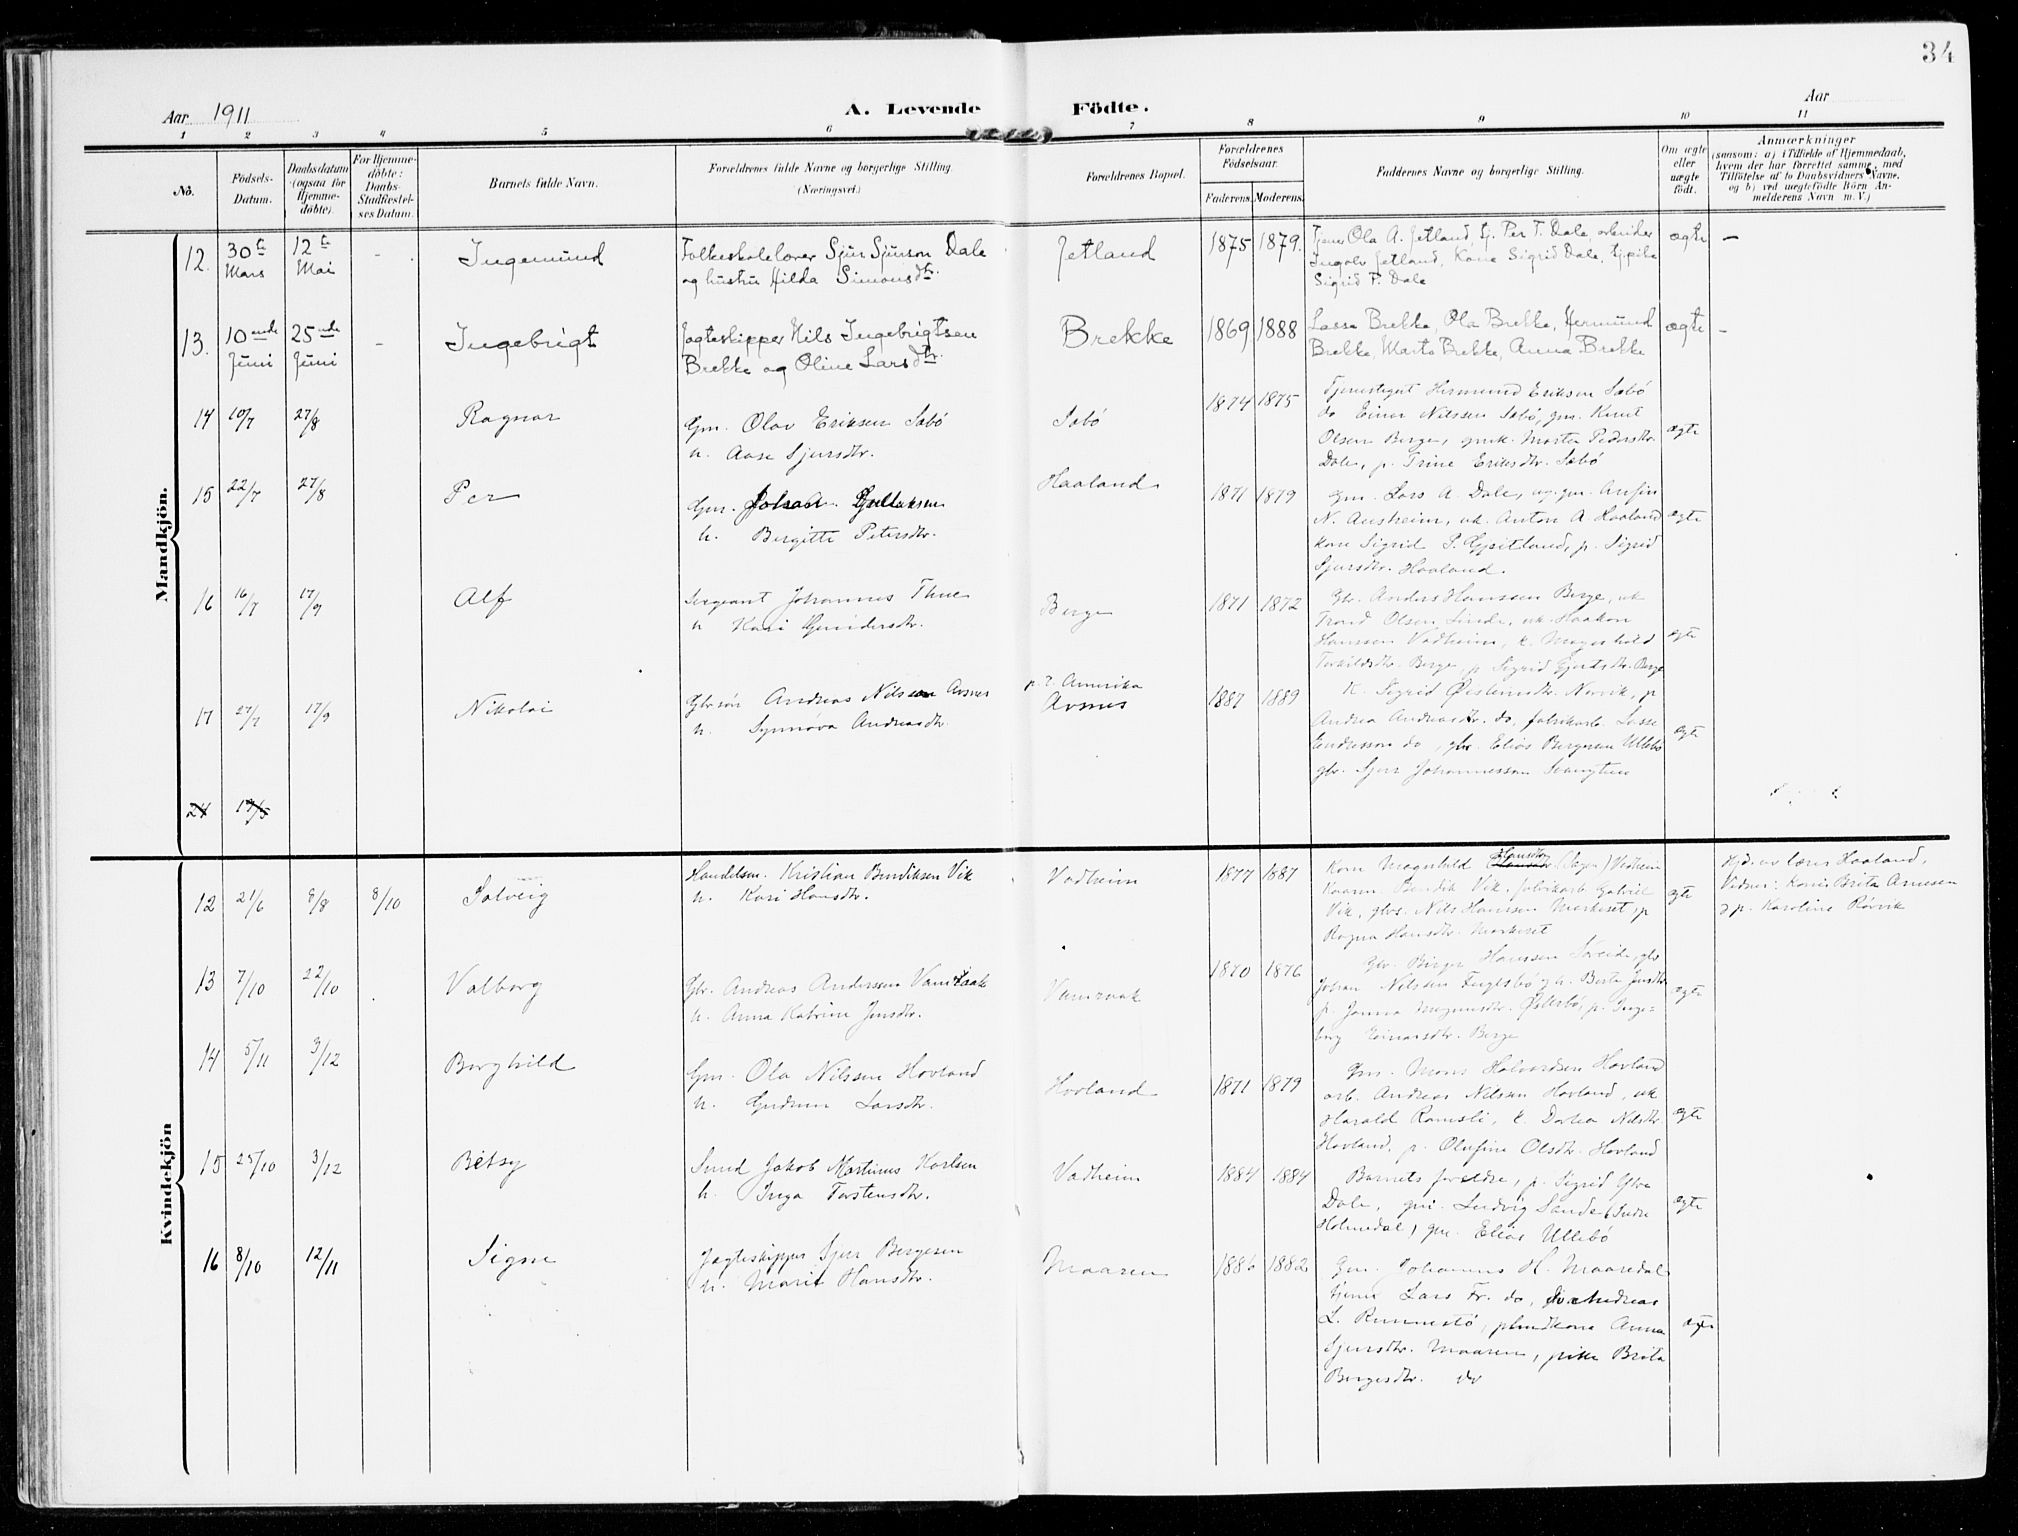 34
Aar 1911
A. Levende Födte.
Aar
1 2 3 4 5 6 7 8 9 10 11
No.
Födsels-Datum.
Daabsdatum (ogsaa for Hjemme-döbte).
For Hjemme-döbte: Daabs-Stadfæstel-ses Datum.
Barnets fulde Navn.
Forældrenes fulde Navne og borgerlige Stilling.
(Næringsvei.)
Forældrenes Bopæl.
Forældrenes Födselsaar.
Faderens. Moderens.
Faddernes Navne og borgerlige Stilling.
Om ægte eller uægte födt.
Anmærkninger
(saasom: a) i Tilfælde af Hjemmedaab,
hvem der har forrettet samme, med
Tilföielse af to Daabsvidners Navne,
og b) ved uægtefödte Börn An-
melderens Navn m. V.)
Mandkjön.
12. 30te Mars 12te Mai - Ingemund
Folkeskolelærer Sjur Sjurson Dale
og hustru Hilda Simonsdtr.
Jetland 1875 1879.
Tjener Ola A. Jetland, tj. Per T. Dale, arbeider
Ingolv Jetland, Kone Sigrid Dale, tj.pike
Sigrid P. Dale
ægte -
13. 10ende Juni 25nde Juni - Ingebrigt
Jagteskipper Nils Ingebrigtsen
Brekke og Oline Larsdtr.
Brekke 1869 1888
Lasse Brekke, Ola Brekke, Hermund
Brekke, Marta Brekke, Anna Brekke
ægte -
14 10/7 27/8 Ragnar
Gm. Olav Eriksen Sæbö
h. Aase Sjursdtr.
Sæbö 1874 1875
Tjenestegut Hermund Eriksen Sæbö
do Einar Nilssen Sæbö, gm. Knut
Olsen Berge, gmk. Marta Pedersdtr.
Dale, p. Trine Eriksdtr. Sæbö
ægte
15 22/7 27/8 Per
Gm. Johan Gullaksen
h. Birgitte Petersdtr.
Haaland 1871 1879
Gm. Lars A. Dale, ug. gm. Anfin
N. Ausheim, uk. Anton A. Haaland
kone Sigrid S. Gjeitland, p. Sigrid
Sjursdtr. Haaland.
ægte
16 16/7 17/9 Alf
Sergeant Johannes Thue
h Kari Gunddersdtr.
Berge 1871 1872
Gbr. Anders Hanssen Berge, uk
Trond Olsen Linde, uk. Haakon
Hanssen Vadheim, k. Magnhild
Torkildsdtr. Berge, p. Sigrid Gjertsdtr. Berge
ægte
17 27/7 17/9 Nikolai
Gbr.sön Andreas Nilssen Avsnes
h. Synnöva Andreasdtr.
p. t. Amerika
Avsnes 1887 1889
K. Sigrid Östensdtr. Nervik, p
Andrea Andreasdtr. do, fabrikarb. Lasse
Endresson do, gbr. Elias Bergesen Ullebö
gbr. Sjur Johannesson Svangtun
ægte
24 19/5
Kvindekjön
12 21/6 8/8 8/10 Solveig
Handelsm. Kristian Bendiksen Vik
h. Kari Hansdtr.
Vadheim 1877 1887
Kone Magnhild Hansdtr. Vadheim
Kaaren Bendik Vik, fabrikarb Gabriel
Vik, gbrs. Nils Hanssen Markeset, p
Ragna Hansdtr. Markeset
ægte
Hjd. av lærer Haaland,
Vidner: Kone Brita Arnesen
og p. Karoline Rörvik
13 7/10 22/10 Valborg
Gbr. Andreas Anderssen Vamraak
h. Anna Katrine Jensdtr.
Vamraak 1870 1876
Gbr. Birger Hanssen Söreide, gbr
Johan Nilssen Fuglsbö, gk. Berte Jensdtr
p. Janna Magnusdtr. Östebö, p. Inge-
borg Einarsdtr. Berge
ægte
14 5/11 3/12 Borghild
Gm. Ola Nilssen Hovland
h. Gudrun Larsdtr.
Hovland 1871 1879
Gm. Mons Halvardsen Hovland
arb. Andreas Nilssen Hovland, uk
Harald Ramsli, k. Dortea Nilsdtr.
Hovland, p. Olufine Olsdtr. Hovland
ægte
15 25/10 3/12 Betsy
Smed Jakob Martinus Karlsen
h. Inga Torstensdtr.
Vadheim 1884 1884
Barnets forældre, p. Sigrid Ylva
Dale, gm. Ludvig Sande (Indre
Holmedal), gm. Elias Ullebö
ægte
16 8/10 12/11 Signe
Jagteskipper Sjur Bergesen
h. Marit Hansdtr.
Maaren 1886 1882
Gm. Johannes H. Maaredal
tjener Lars Fr. do, Andreas
L. Runnestö, Anna
Sjursdtr. Maaren, pike Brita
Bergesdtr. do
ægte